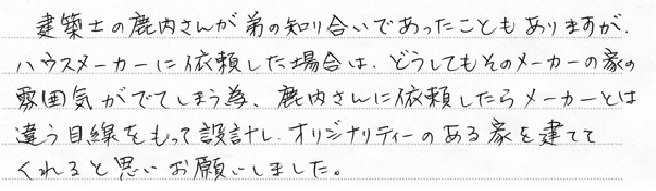 建築士の鹿内さんが弟の知り合いであったこともありますが、
ハウスメーカーに依頼した場合は、どうしてもそのメーカーの家の
雰囲気がでてしまう為、鹿内さんに依頼したらメーカーとは
違う目線をもって設計し、オリジナリティーのある家を建てて
くれると思いお願いしました。